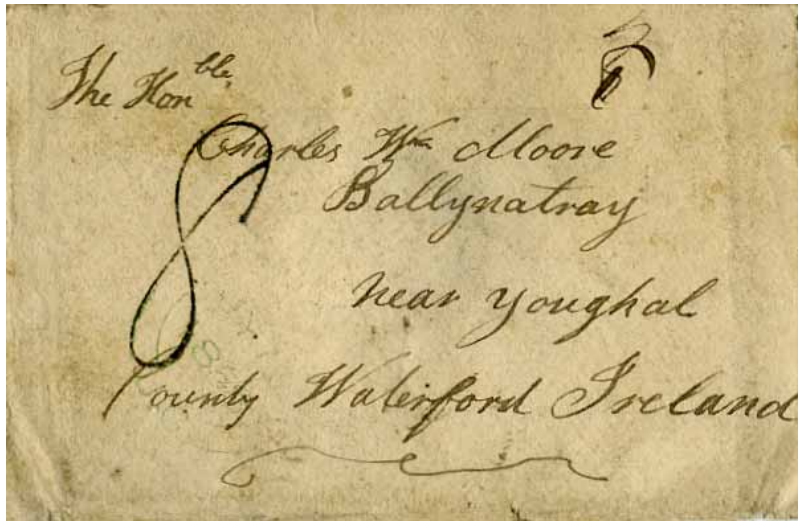 The Hon^ble
Charles Wm Moore
Ballynatray
near Youghal
County Waterford Ireland
8